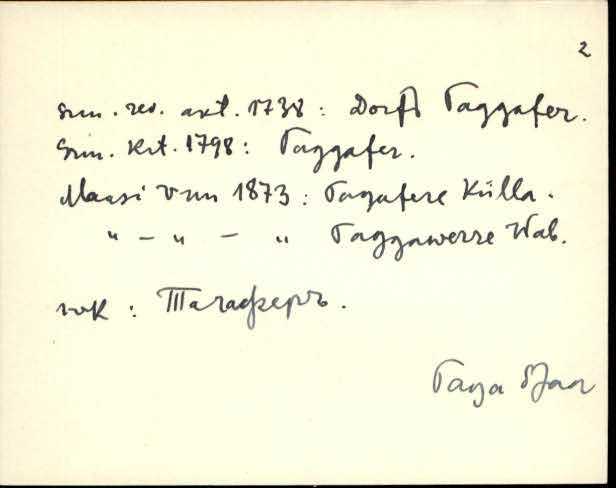 2
Sm. rev. akt. 1738: Dorff Taggafer.
Sm. Krt. 1798: Taggafer.
Maasi Vm 1873: Tagafere Külla.
" – " – " Taggawerre Wab.
vvK: Тагаферъ.
Taga